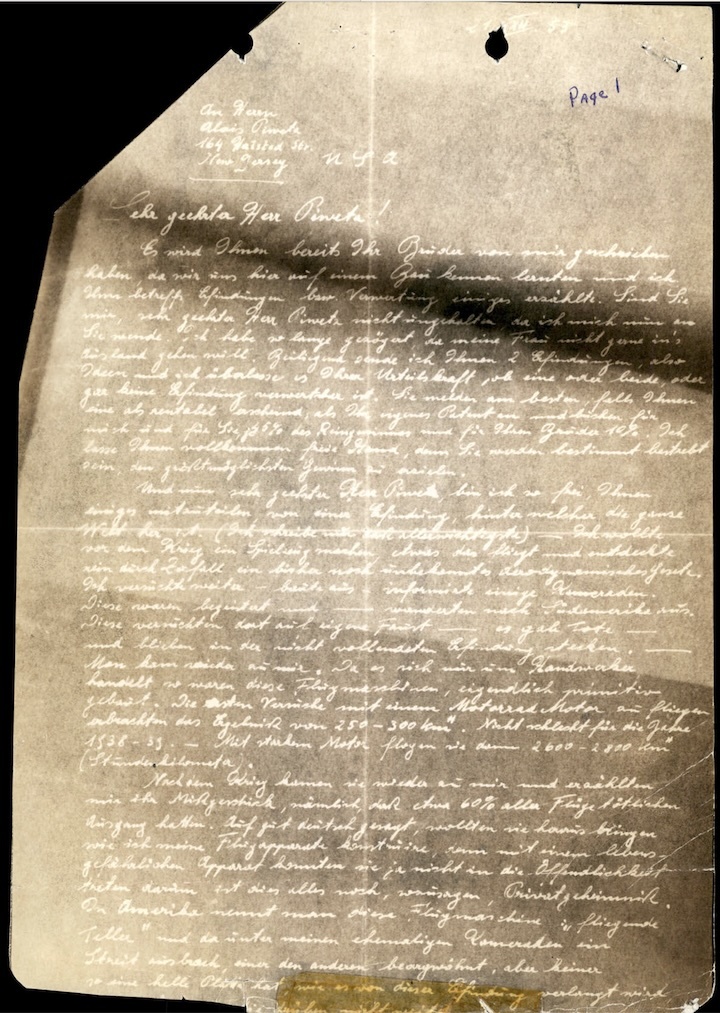 Page 1
An Herrn
Alois Piweta
164 Halsted Str.
New Jersey U S A
Sehr geehrter Herr Piweta!
Es wird Ihnen bereits Ihr Bruder von mir geschrieben
haben, da wir uns hier auf einem Bau kennen lernten und ich
Ihm betreffs Erfindungen bzw Verwertung einiges erzählte. Sind Sie
mir, sehr geehrter Herr Piweta nicht ungehalten, da ich mich nun an
Sie wende, ich habe so lange gezögert, da meine Frau nicht gerne ins
Ausland gehen will. Beiliegend sende ich Ihnen 2 Erfindungen, also
Ideen und ich überlasse es Ihrer Urteilskraft, ob eine oder beide, oder
gar keine Erfindung verwertbar ist. Sie melden am besten, falls Ihnen
eine als rentabel erscheint, als Ihr eigenes Patent an und für
mich und für Sie je % des Reingewinnes und für Ihren Bruder 10%. Ich
lasse Ihnen vollkommen freie Hand, denn Sie werden bestimmt bestrebt
sein, den größtmöglichsten Gewinn zu erzielen.
Und nun, sehr geehrter Herr Piweta, bin ich so frei, Ihnen
einiges mitzuteilen von einer Erfindung, hinter welcher die ganze
Welt her ist. (Ich schreibe nur das allerwichtigste) — Ich wollte
vor dem Krieg ein Spielzeug machen etwas das fliegt und entdeckte
rein durch Zufall ein bisher noch unbekanntes aerodynamisches Gesetz.
Ich versuchte weiter — baute aus — informierte einige Kameraden.
Diese waren begeistert und — wanderten nach Südamerika aus.
Diese versuchten dort auf eigene Faust — es gab Tote —
und blieben in der nicht vollendeten Erfindung stecken. —
Man kam wieder zu mir. Da es sich nur um Handwerker
handelt so waren diese Flugmaschinen, eigendlich primitiv
gebaut. Die ersten Versuche mit einem Motorrad Motor zu fliegen
erbrachten das Ergebnis von 250 – 300 km". Nicht schlecht für die Jahre
1938 – 39. — Mit starkem Motor flogen sie dann 2600 – 2800 km"
(Stundenkilometer).
Nach dem Krieg kamen sie wieder zu mir und erzählten
mir ihr Mißgeschick, nämlich, daß etwa 60% aller Flüge tötlichen
Ausgang hatten. Auf gut deutsch gesagt, wollten sie heraus bringen
wie ich meine Flugapparate konstruire, denn mit einem lebens-
gefährlichen Apparat konnten sie ja nicht in die Öffendlichkeit
treten darum ist dies alles noch, sozusagen, Privatgeheimniß.
In Amerika nennt man diese Flugmaschine "fliegende
Teller" und da unter meinen ehemaligen Kameraden ein
Streit ausbrach einer den anderen beargwöhnt, aber keiner
so eine helle Platte hat, wie es von dieser Erfindung verlangt wird